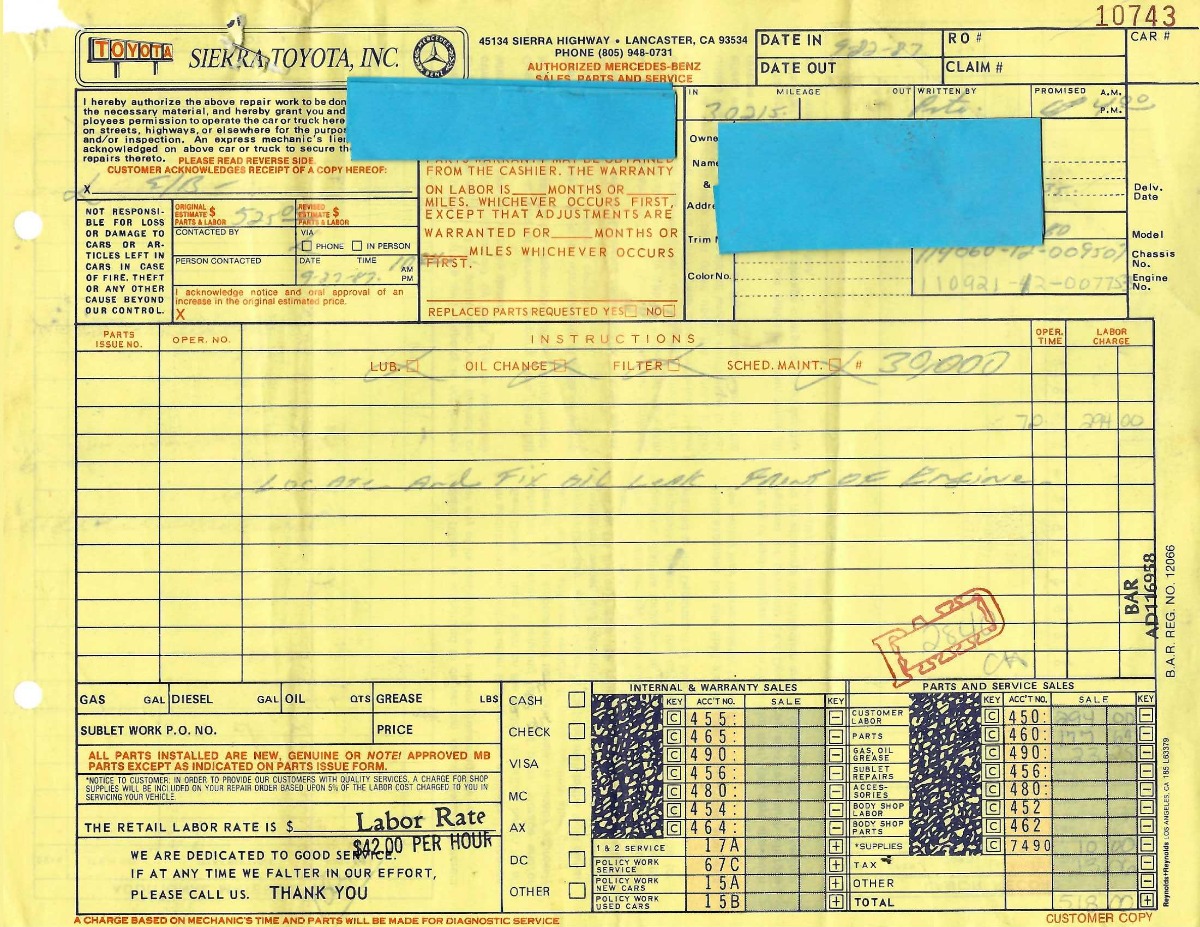 10743
TOYOTA SIERRA TOYOTA, INC. MERCEDES BENZ
45134 SIERRA HIGHWAY • LANCASTER, CA 93534
PHONE (805) 948-0731
AUTHORIZED MERCEDES-BENZ
SALES, PARTS AND SERVICE
DATE IN RO # CAR #
DATE OUT CLAIM #
IN MILEAGE OUT WRITTEN BY PROMISED A.M.
P.M.
30215 Pete 4:00
I hereby authorize the above repair work to be don
the necessary material, and hereby grant you and
ployees permission to operate the car or truck here
on streets, highways, or elsewhere for the purpo
and/or inspection. An express mechanic's lien
acknowledged on above car or truck to secure th
repairs thereto. PLEASE READ REVERSE SIDE.
CUSTOMER ACKNOWLEDGES RECEIPT OF A COPY HEREOF:
X
NOT RESPONSI-
BLE FOR LOSS
OR DAMAGE TO
CARS OR AR-
TICLES LEFT IN
CARS IN CASE
OF FIRE, THEFT
OR ANY OTHER
CAUSE BEYOND
OUR CONTROL.
ORIGINAL ESTIMATE $ PARTS & LABOR 525
REVISED ESTIMATE $ PARTS & LABOR
CONTACTED BY VIA
PHONE IN PERSON
PERSON CONTACTED DATE TIME AM
PM
I acknowledge notice and oral approval of an
increase in the original estimated price.
X
PARTS WARRANTY MAY BE OBTAINED
FROM THE CASHIER. THE WARRANTY
ON LABOR IS MONTHS OR
MILES. WHICHEVER OCCURS FIRST,
EXCEPT THAT ADJUSTMENTS ARE
WARRANTED FOR MONTHS OR
MILES WHICHEVER OCCURS
FIRST.
REPLACED PARTS REQUESTED YES NO
Owne
Name
&
Addre
Trim
Color No.
Delv.
Date
80 Model
114060-12-009507 Chassis
No.
Engine
No.
PARTS ISSUE NO. OPER. NO. INSTRUCTIONS OPER. TIME LABOR CHARGE
LUB. OIL CHANGE FILTER SCHED. MAINT. # 30,000
70 294 00
Locate and Fix oil leak. Front of Engine
BAR
AD116958
B.A.R. REG. NO. 12066
GAS GAL DIESEL GAL OIL QTS GREASE LBS
SUBLET WORK P.O. NO. PRICE
ALL PARTS INSTALLED ARE NEW, GENUINE OR NOTE! APPROVED MB
PARTS EXCEPT AS INDICATED ON PARTS ISSUE FORM.
*NOTICE TO CUSTOMER: IN ORDER TO PROVIDE OUR CUSTOMERS WITH QUALITY SERVICES, A CHARGE FOR SHOP
SUPPLIES WILL BE INCLUDED ON YOUR REPAIR ORDER BASED UPON 5% OF THE LABOR COST CHARGED TO YOU IN
SERVICING YOUR VEHICLE.
THE RETAIL LABOR RATE IS $ Labor Rate
$42.00 PER HOUR
WE ARE DEDICATED TO GOOD SERVICE.
IF AT ANY TIME WE FALTER IN OUR EFFORT,
PLEASE CALL US. THANK YOU
CASH
CHECK
VISA
MC
AX
DC
OTHER
INTERNAL & WARRANTY SALES
KEY ACC'T NO. SALE KEY
C 455: −
C 465: −
C 490: −
C 456: −
C 480: −
C 454: −
C 464: −
1 & 2 SERVICE 17A +
POLICY WORK SERVICE 67C +
POLICY WORK NEW CARS 15A +
POLICY WORK USED CARS 15B +
PARTS AND SERVICE SALES
KEY ACC'T NO. SALE KEY
CUSTOMER LABOR C 450: 294 00 −
PARTS C 460: −
GAS, OIL GREASE C 490: −
SUBLET REPAIRS C 456: −
ACCES- SORIES C 480: −
BODY SHOP LABOR C 452 −
BODY SHOP PARTS C 462 −
*SUPPLIES C 7490 −
TAX +
OTHER +
TOTAL 518 +
Reynolds+Reynolds LOS ANGELES, CA
A CHARGE BASED ON MECHANIC'S TIME AND PARTS WILL BE MADE FOR DIAGNOSTIC SERVICE
CUSTOMER COPY